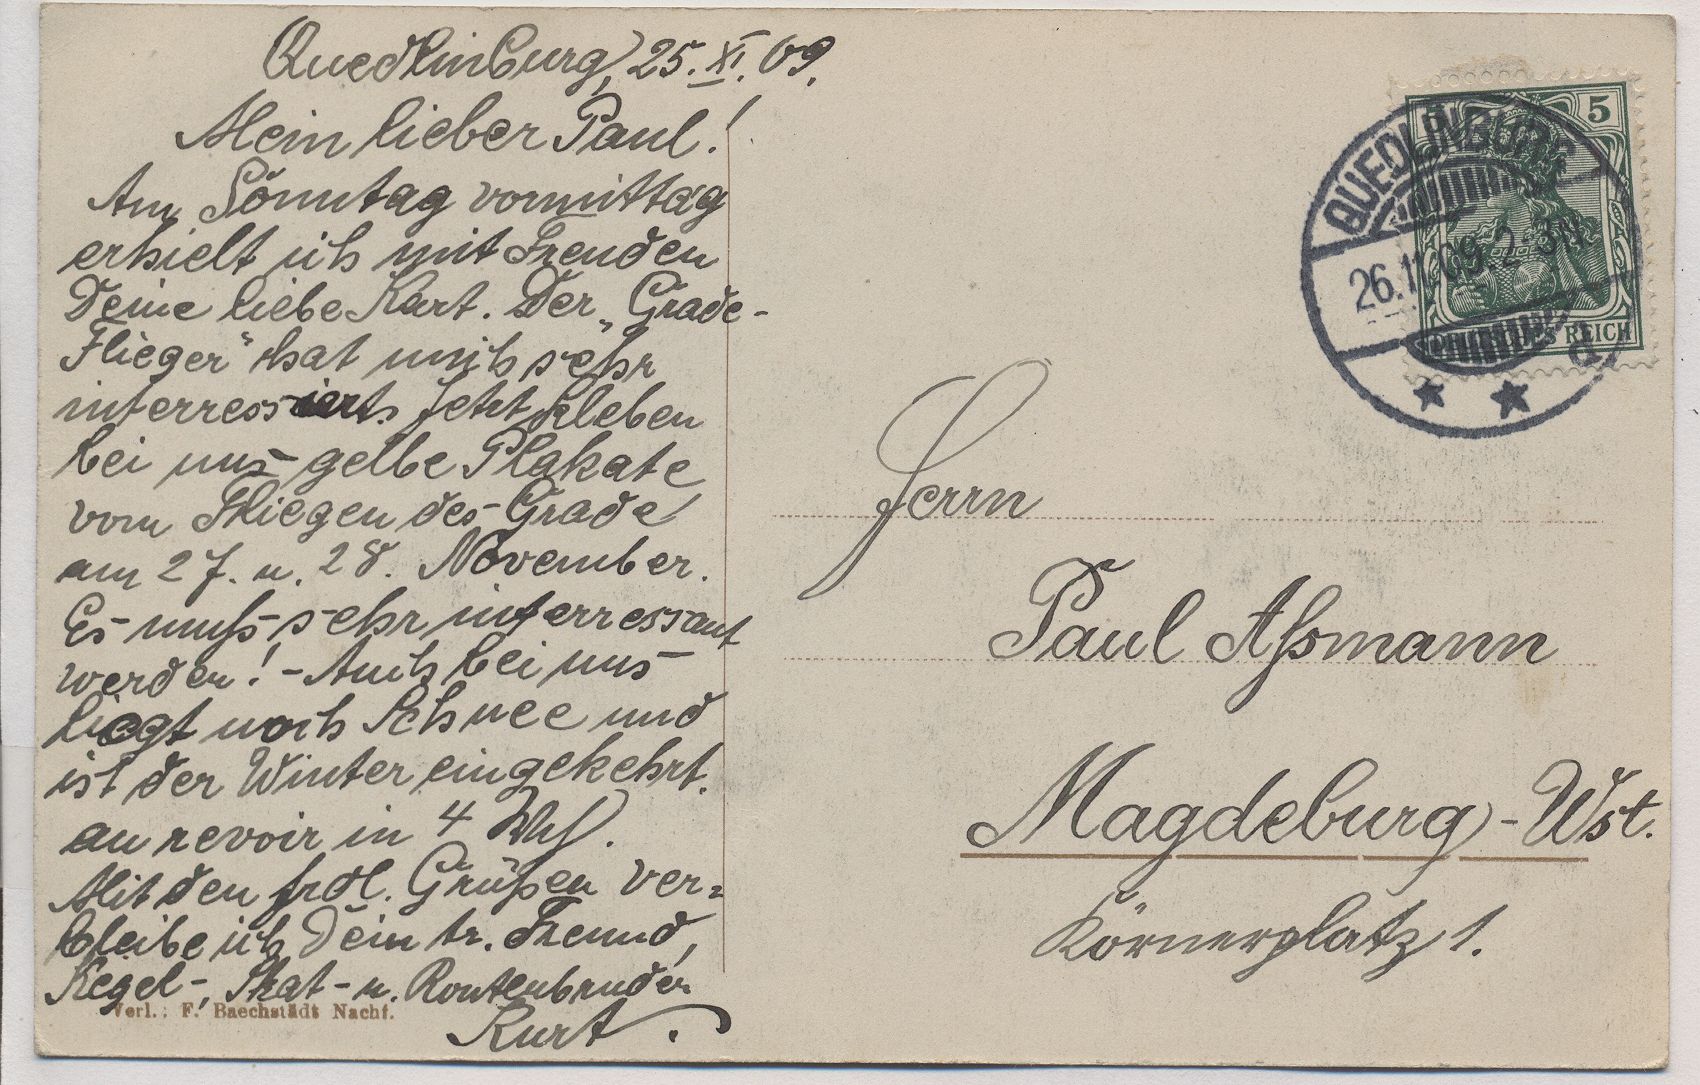 Quedlinburg, 25. XI. 09.
Mein lieber Paul!
Am Sonntag vormittag
erhielt ich mit Freuden
Deine liebe Kart. Der „Grade-
Flieger“ hat mich sehr
interressiert. Jetzt kleben
bei uns gelbe Plakate
vom Fliegen des Grade
am 27. u. 28. November.
Es muß sehr interressant
werden! - Auch bei uns
liegt noch Schnee und
ist der Winter eingekehrt.
au revoir in 4 Wch.
Mit den frdl. Grüßen ver-
bleibe ich Dein tr. Freund,
Kegel-, Skat- u. Routenbruder
Kurt.
Verl.: F. Baechstädt Nachf.
5
DEUTSCHES REICH
QUEDLINBURG
26.11.09.2-3N
d
Herrn
Paul Aßmann
Magdeburg-Wst.
Körnerplatz 1.